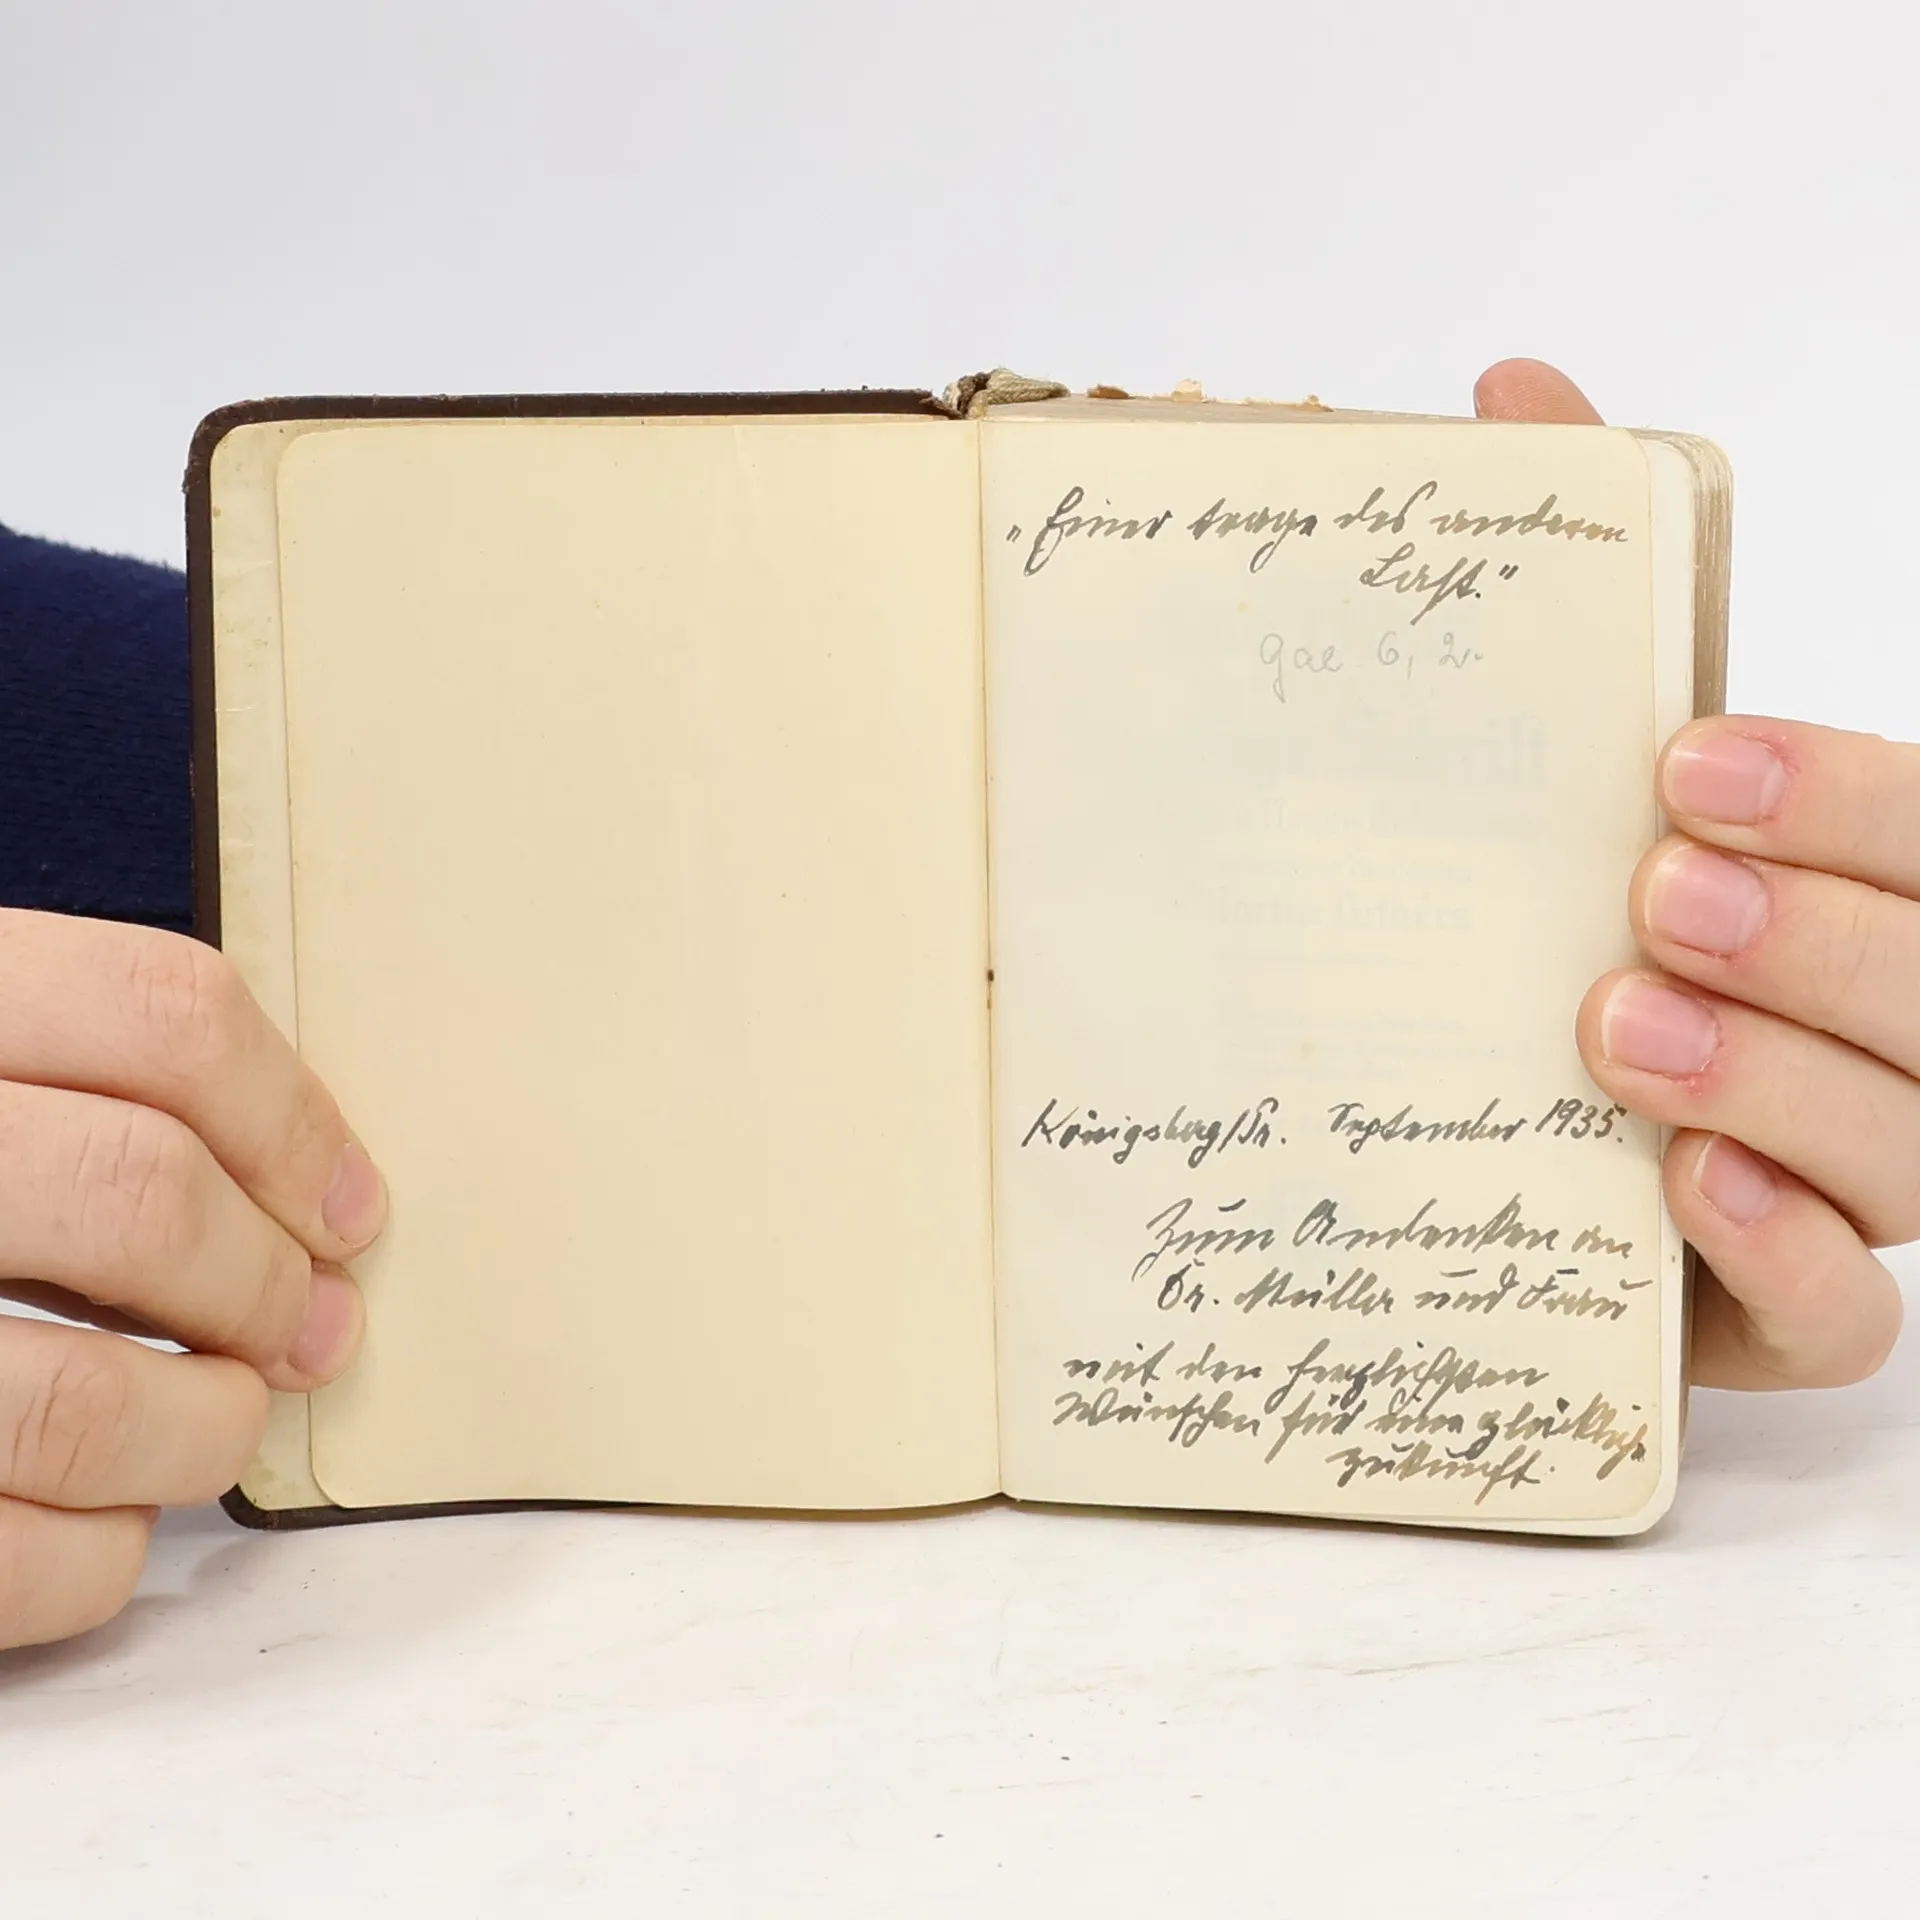 „Einer trage des anderen
Last."
Gal 6, 2.
Königsberg/Pr. September 1935.
Zum Andenken an
Dr. Müller und Frau
mit den herzlichsten
Wünschen für eine glückliche
Zukunft.